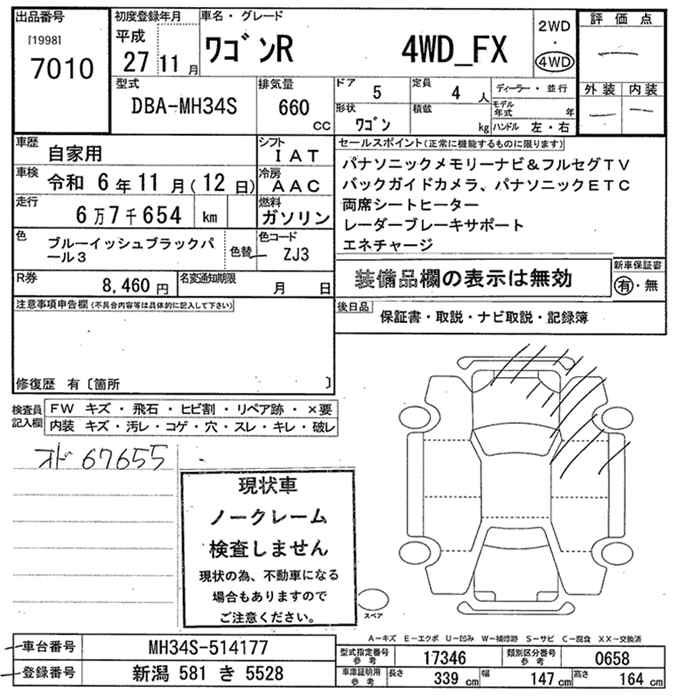 出品番号
[1998]
7010
初度登録年月
平成
27 11 月
車名・グレード
ワゴンR 4WD_FX
2WD
・
4WD
評 価 点
外 装 内 装
型式
DBA-MH34S
排気量
660
cc
ドア
5
定員
4 人
形状
ワゴン
積載
kg
ディーラー・並行
モデル年式 年
ハンドル 左・右
車歴
自家用
シフト
IAT
車検
令和 6 年 11 月 ( 12 日)
冷房
AAC
走行
6 万 7 千 654 km
燃料
ガソリン
色
ブルーイッシュブラックパ
ール3
色替
色コード
ZJ3
R券
8,460 円
名変通知期限
月 日
セールスポイント(正常に機能するものに限ります)
パナソニックメモリーナビ&フルセグTV
バックガイドカメラ、パナソニックETC
両席シートヒーター
レーダーブレーキサポート
エネチャージ
装備品欄の表示は無効
新車保証書
有・無
後日品
保証書・取説・ナビ取説・記録簿
注意事項申告欄(不具合内容等は具体的に記入して下さい)
修復歴 有〔箇所 〕
検査員
記入欄
FW キズ・飛石・ヒビ割・リペア跡・×要
内装 キズ・汚レ・コゲ・穴・スレ・キレ・破レ
オド 67655
現状車
ノークレーム
検査しません
現状の為、不動車になる
場合もありますので
ご注意ください。
スペア
A-キズ E-エクボ U-凹み W-補修跡 S-サビ C-腐食 XX-交換済
車台番号
MH34S-514177
登録番号
新潟 581 き 5528
型式指定番号
参 考
17346
類別区分番号
参 考
0658
車庫証明用
参 考
長さ 339 cm
幅 147 cm
高さ 164 cm